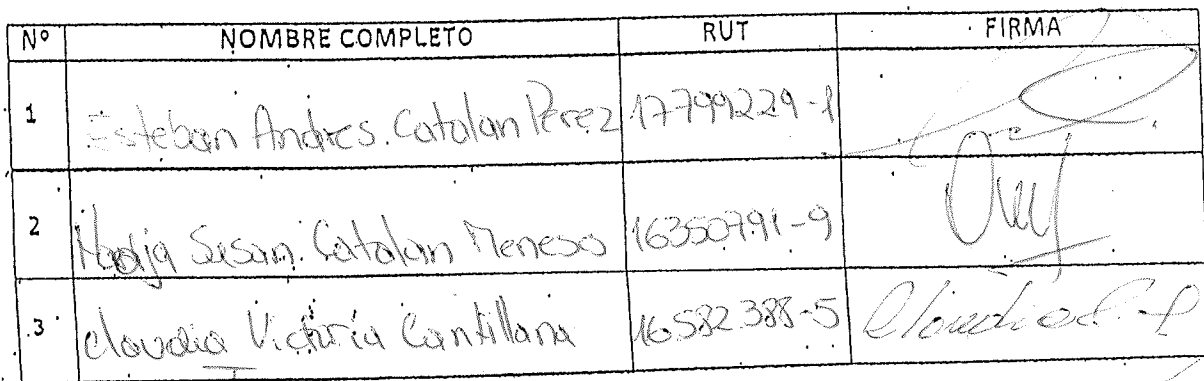 Nº NOMBRE COMPLETO RUT FIRMA
1 Esteban Andres. Catalan Perez 17799229-1
2 Nadja Susan. Catalan Meneses 16350791-9
3 Claudia Victoria Cantillana 16582388-5